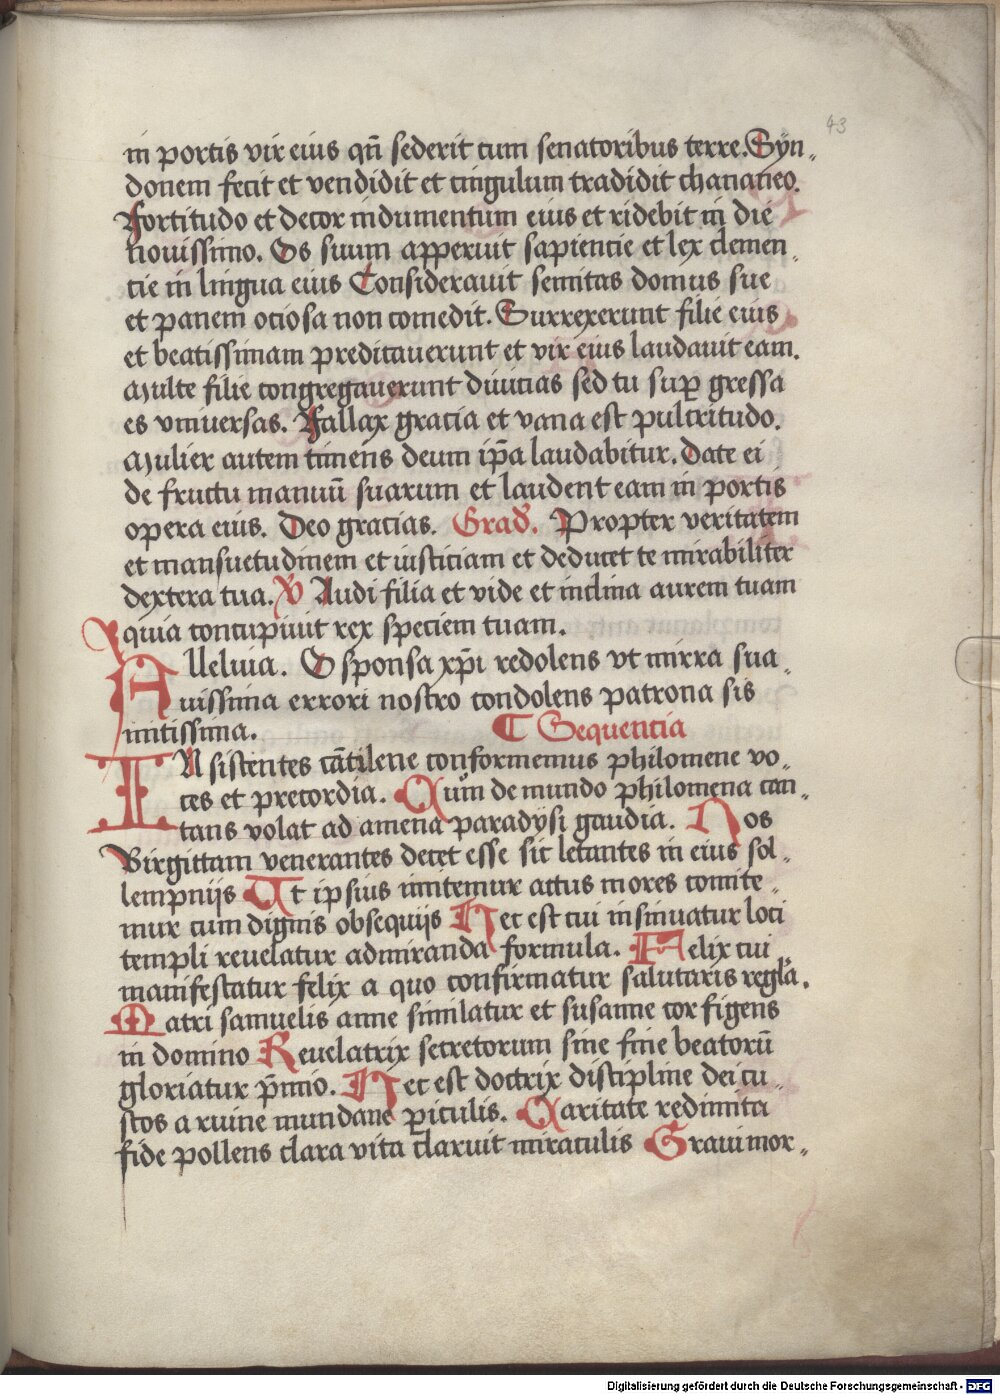 43
in portis vir eius qn̄ sederit cum senatoribus terre. Syn„
donem fecit et vendidit et cingulum tradidit chananeo.
Fortitudo et decor indumentum eius et ridebit in die
nouissimo. Os suum apperuit sapiencie et lex clemen„
cie in lingua eius Considerauit semitas domus sue
et panem ociosa non comedit. Surrexerunt filie eius
et beatissimam predicauerunt et vir eius laudauit eam.
Multe filie congregauerunt diuicias sed tu suꝑ gressa
es vniuersas. Fallax gracia et vana est pulcritudo.
Mulier autem timens deum ip̄a laudabitur. Date ei
de fructu manuū suarum et laudent eam in portis
opera eius. Deo gracias. Grad̄. Propter veritatem
et mansuetudinem et iusticiam et deducet te mirabiliter
dextera tua. V Audi filia et vide et inclina aurem tuam
quia concupiuit rex speciem tuam.
Alleluia. O sponsa xp̄i redolens vt mirra sua„
uissima errori nostro condolens patrona sis
mitissima. Sequencia
IN sistentes cātilene conformemus philomene vo„
ces et precordia. Qum de mundo philomena can„
tans volat ad amena paradysi gaudia. Nos
Birgittam venerantes decet esse sic letantes in eius sol„
lempnijs Ut ipsius imitemur actus mores comite„
mur cum dignis obsequijs Hec est cui insinuatur loci
templi reuelatur admiranda formula. Felix cui
manifestatur felix a quo confirmatur salutaris regla.
Matri samuelis anne similatur et susanne cor figens
in domino Reuelatrix secretorum sine fine beatorū
gloriatur p̄mio. Hec est doctrix discipline dei cu„
stos a ruine mundane ꝑiculis. Caritate redimita
fide pollens clara vita claruit miraculis Graui mor„
Digitalisierung gefördert durch die Deutsche Forschungsgemeinschaft - DFG